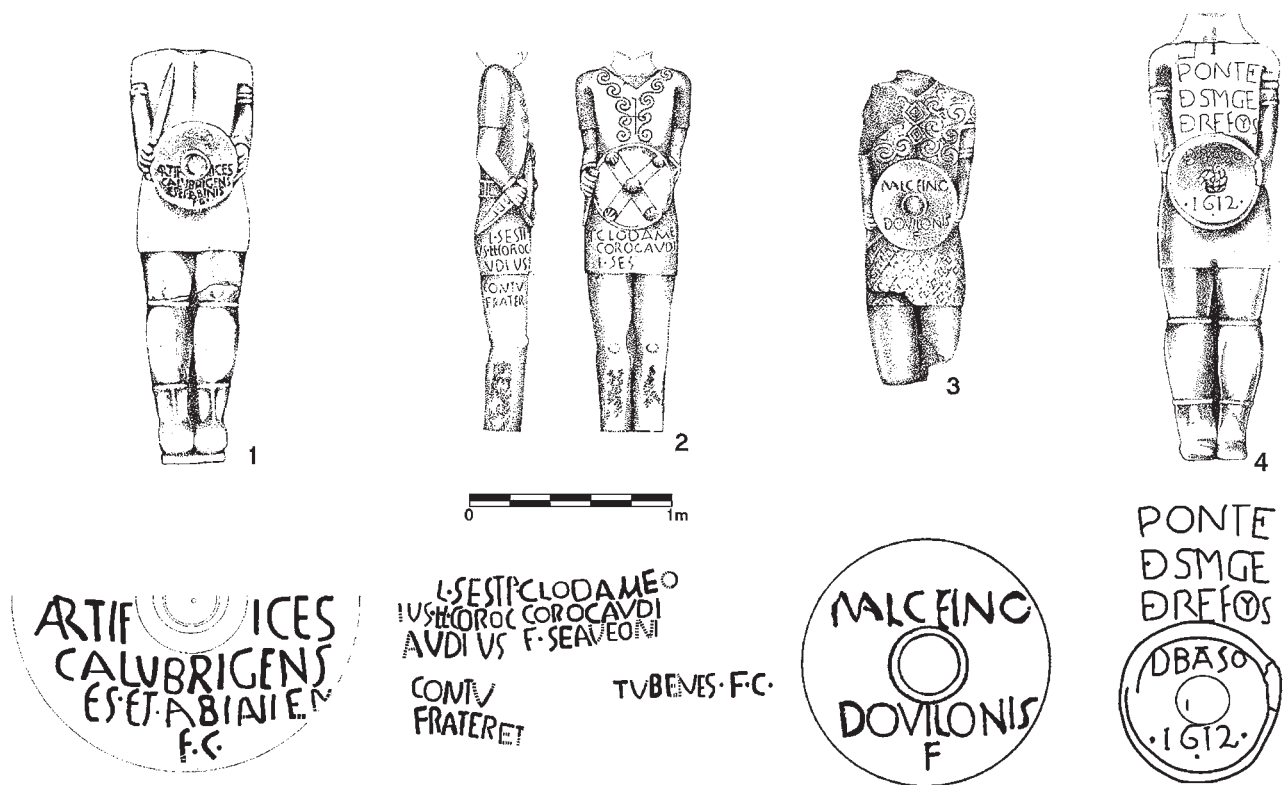 ARTIF ICES
CALUBRIGENS
F·C·
1
L·SESTI
VDIUS
CONTV
FRATER
CLODAME
COROCAVDI
F·SES
2
MALCEINO
DOVILONIS
F
3
PONTE
ĐSMGE
ĐREFⓎS
·1612·
4
0 1m
ARTIF ICES
CALUBRIGENS
ES·ET·ABIANIEN
F·C·
L·SESTI
IUS·L·L·COROC
AUDIUS
CLODAMEO
COROCAVDI
F·SEAVEONI
CONTV
FRATERET
TVBENES·F·C·
MALCEINO
DOVILONIS
F
PONTE
ĐSMGE
ĐREFⓎS
DBASO
·1612·